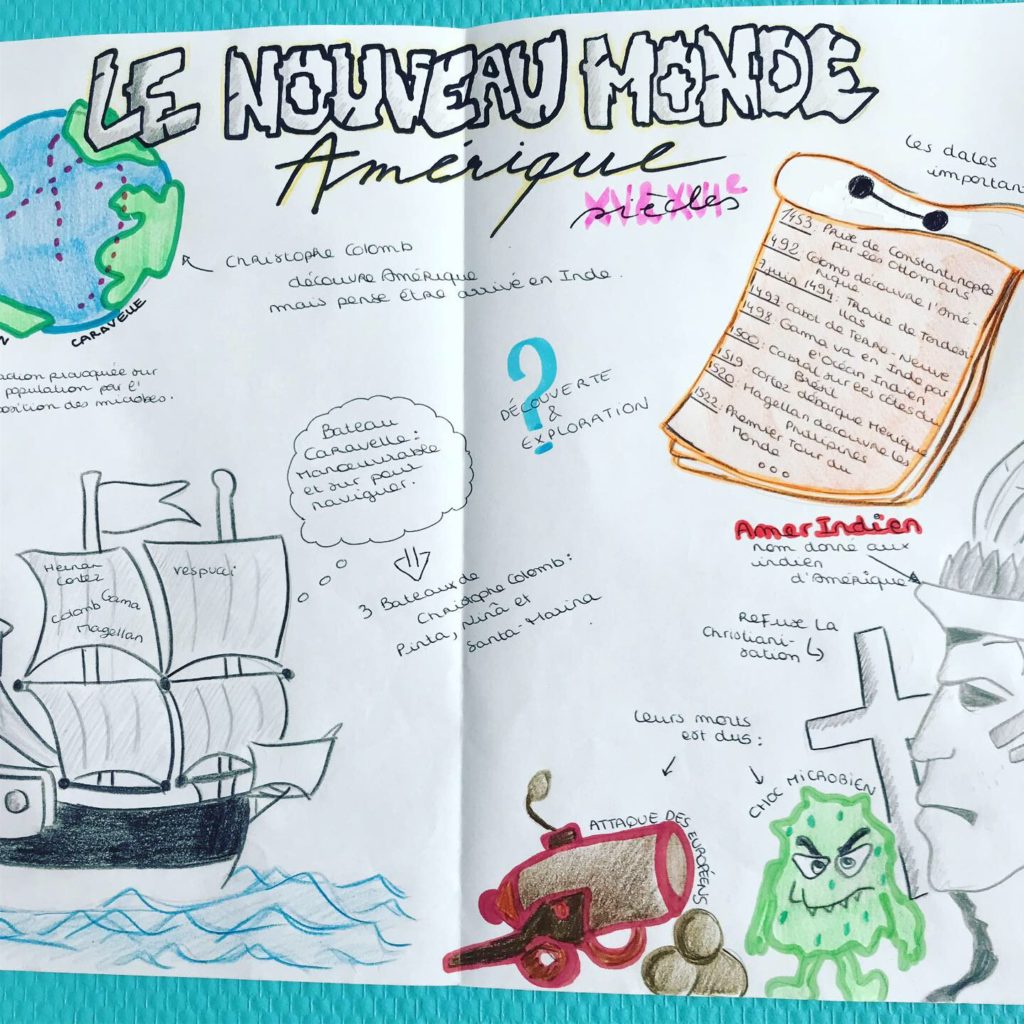 LE NOUVEAU MONDE
Amérique
XV & XVIe
siècles
Christophe Colomb
découvre Amérique
mais pense être arrivé en Inde.
CARAVELLE
provoquée sur
population par l'
des microbes.
Les dates
important
1453: Prise de Constantinople
par les Ottomans
1492 Colomb découvre l'Amé-
rique
7 juin 1494: Traité de Tordesi
llas
1497 Cabot de Terre-Neuve
1498: Gama va en Inde par
l'Océan Indien
1500: Cabral sur les côtes du
Brésil
1519 Cortez débarque Mexique
1520: Magellan découvre les
Phillipines
1522: Premier Tour du
Monde
...
?
DÉCOUVERTE
&
EXPLORATION
Bateau
Caravelle:
Manoeuvrable
et sur pour
naviguer.
3 Bateaux de
Christophe Colomb:
Pinta, Ninâ et
Santa-Marina
Hernan
Cortez
Gama
Colomb
Magellan
Vespucci
AmerIndien
nom donné aux
indien
d'Amérique
Refuse la
Christiani-
sation
Leurs morts
est dus:
ATTAQUE DES EUROPÉENS
CHOC MICROBIEN